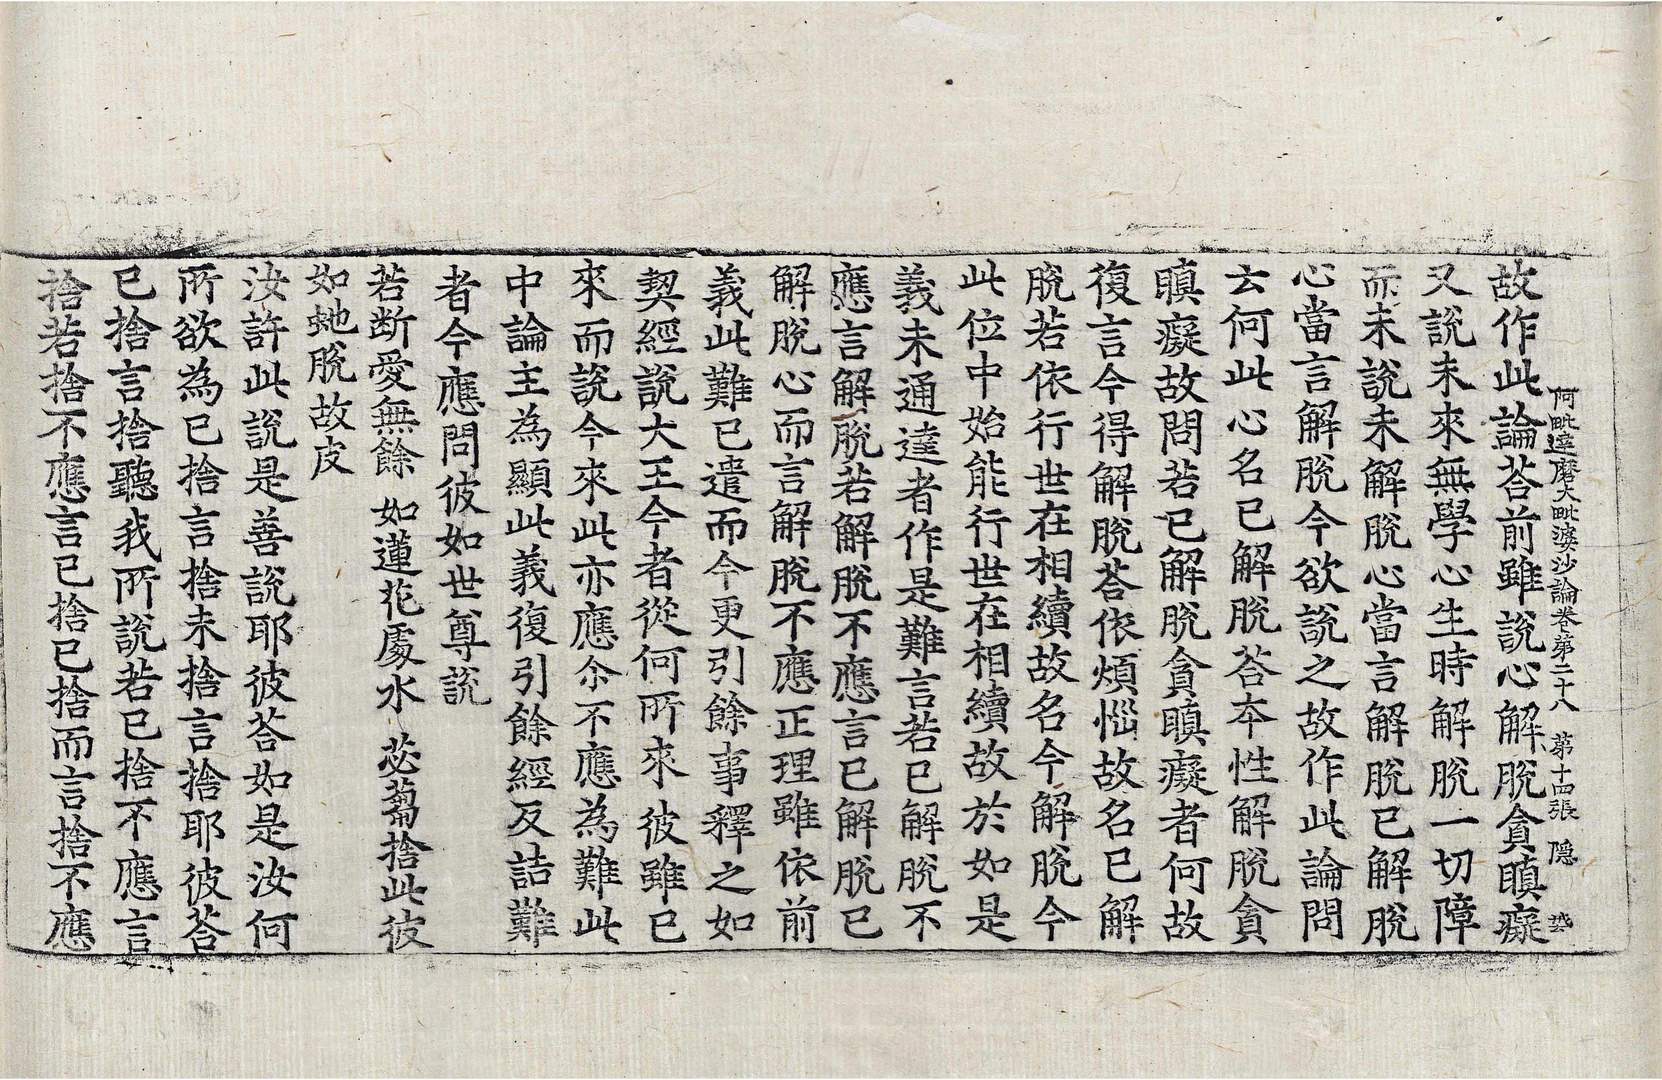 阿毗達磨大毗婆沙論卷第二十八　第十四張　隱
故作此論荅前雖說心解脫貪瞋癡
又說未來無學心生時解脫一切障
而未說未解脫心當言解脫已解脫
心當言解脫今欲說之故作此論問
云何此心名已解脫荅本性解脫貪
瞋癡故問若已解脫貪瞋癡者何故
復言今得解脫荅依煩惱故名已解
脫若依行世在相續故名今解脫今
此位中始能行世在相續故於如是
義未通達者作是難言若已解脫不
應言解脫若解脫不應言已解脫已
解脫心而言解脫不應正理雖依前
義此難已遣而今更引餘事釋之如
契經說大王今者從何所來彼雖已
來而說今來此亦應尒不應為難此
中論主為顯此義復引餘經反詰難
者今應問彼如世尊說
若斷愛無餘　如蓮花處水　苾蒭捨此彼
如虵脫故皮
汝許此說是善說耶彼荅如是汝何
所欲為已捨言捨未捨言捨耶彼荅
已捨言捨聽我所說若已捨不應言
捨若捨不應言已捨已捨而言捨不應